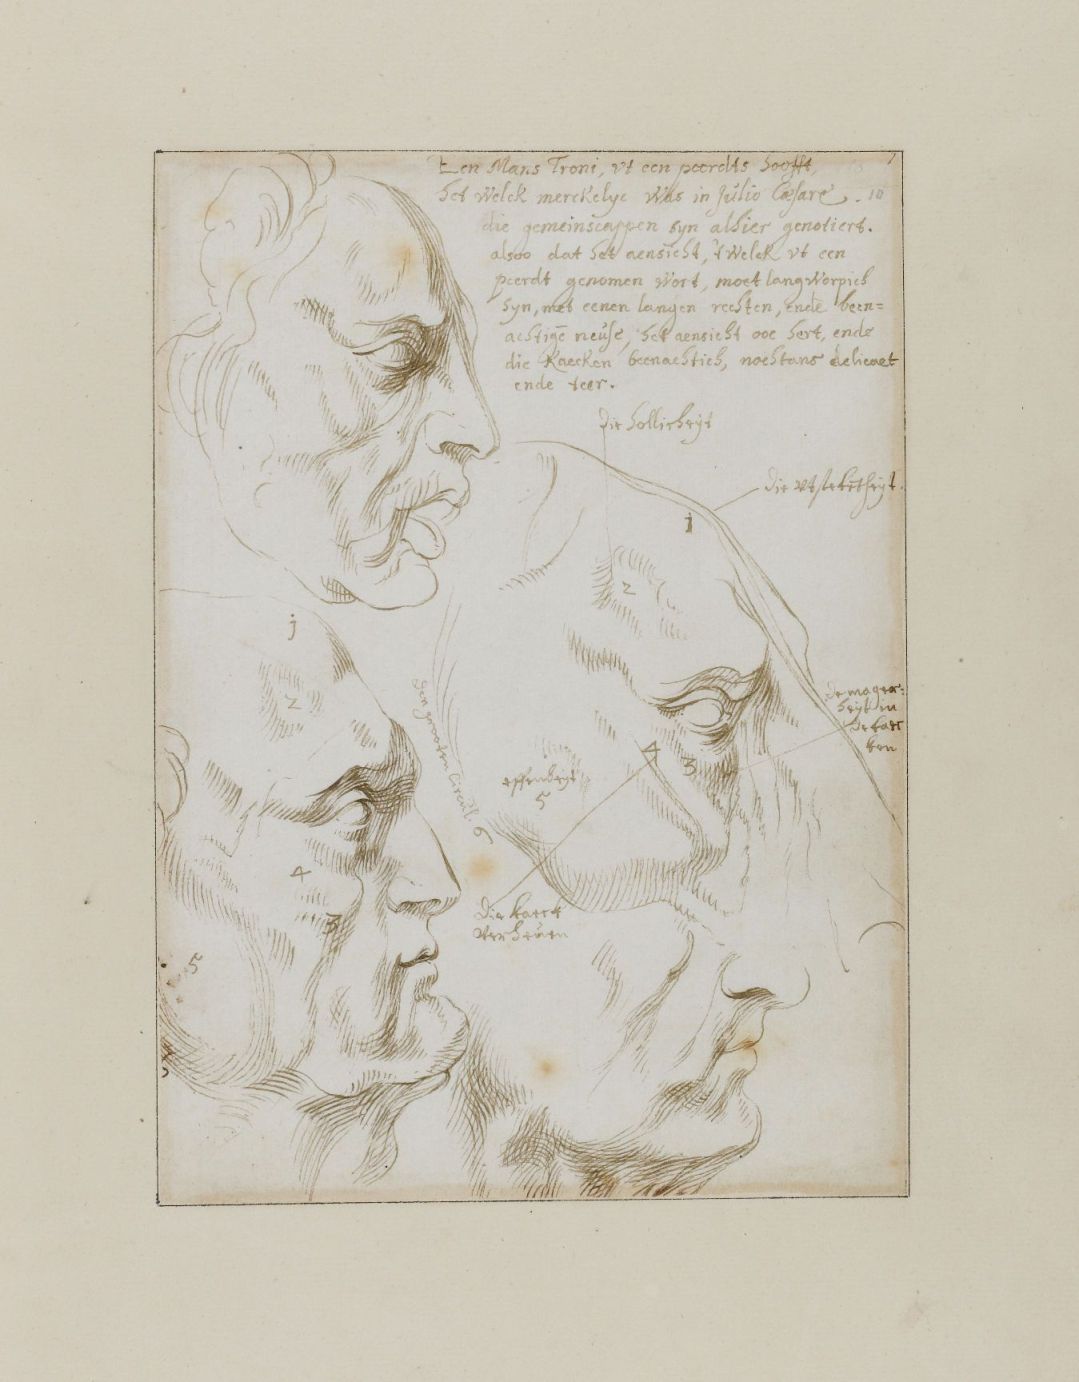 Een Mans Troni, vt een peerdts hoofft,
het welck merckelyc was in Julio Cæsare. 10
die gemeinscappen syn alhier genotiert.
alsoo dat het aensicht, 't welck vt een
peerdt genomen wort, moet langworpich
syn, met eenen langen rechten, ende been=
achtigē neuse, het aensicht ooc hert, ende
die kaecken beenachtich, nochtans delicaet
ende teer.
die hollicheijt
die vtstekētheijt.
1
2
j
2
den grooten circul 6
de mager=
heijt in
de kaec
ken
4
3
effenheijt
5
4
3
5
die kaeck
verheuen